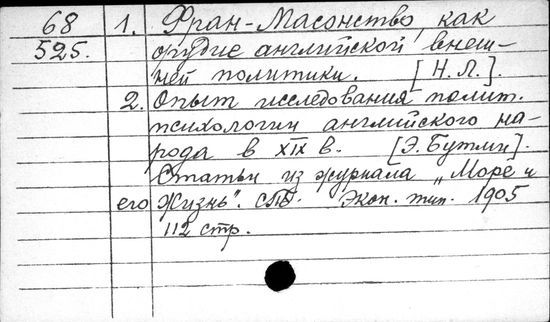 68 1. Фран-Масонство, как
525. орудие английской внеш-
ней политики. [Н.Л.].
2. Опыт исследования полит.
психологии английского на-
рода в XIX в. [Э. Бутми].
Статьи из журнала „Море и
его Жизнь". СПБ. Экон. тип. 1905
112 стр.